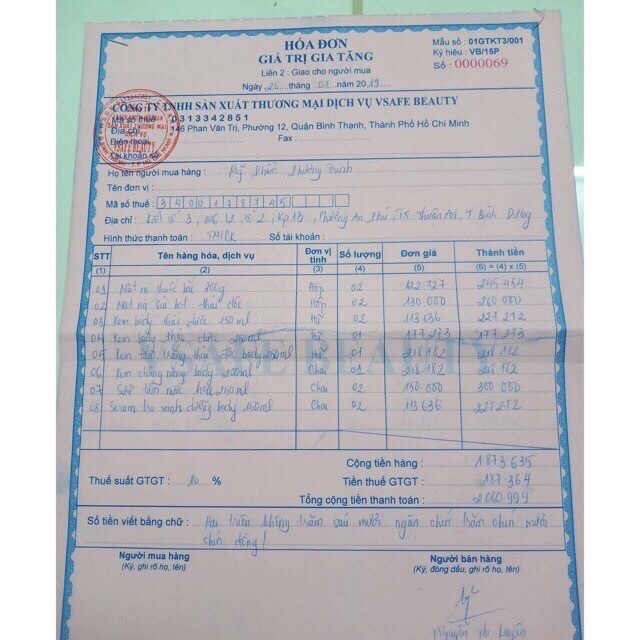 HÓA ĐƠN
GIÁ TRỊ GIA TĂNG
Liên 2 : Giao cho người mua
Ngày 26 tháng 07 năm 2019
Mẫu số : 01GTKT3/001
Ký hiệu : VB/15P
Số : 0000069
CÔNG TY TNHH SẢN XUẤT THƯƠNG MẠI DỊCH VỤ VSAFE BEAUTY
Mã số thuế : 0313342851
Địa chỉ : 146 Phan Văn Trị, Phường 12, Quận Bình Thạnh, Thành Phố Hồ Chí Minh
Điện thoại Fax :
Tài khoản số
VSAFE BEAUTY
Họ tên người mua hàng : Mỹ Phẩm
Tên đơn vị :
Mã số thuế : 3400138745
Địa chỉ : Phường An Phú, TX Thuận An, T. Bình Dương
Hình thức thanh toán : TM/CK Số tài khoản :
STT Tên hàng hóa, dịch vụ Đơn vị tính Số lượng Đơn giá Thành tiền
(1) (2) (3) (4) (5) (6) = (4) x (5)
01 200g Hộp 02 122 727 245 454
02 Hộp 02 130 000 260 000
03 Kem body thảo dược 150ml Hũ 02 113 636 227 272
04 Kem body thảo dược 250ml Hũ 01 177 273 177 273
05 Kem body 250ml Hũ 01 218 182 218 182
06 Kem chống nắng body 200ml Chai 01 218 182 218 182
07 Sữa tắm nước hoa 250ml Chai 02 150 000 300 000
08 Serum trà xanh dưỡng body 150ml Chai 02 113 636 227 272
Cộng tiền hàng : 1 873 635
Thuế suất GTGT : 10 % Tiền thuế GTGT : 187 364
Tổng cộng tiền thanh toán : 2 060 999
Số tiền viết bằng chữ : Hai triệu không trăm sáu mươi ngàn chín trăm chín mươi
chín đồng!
Người mua hàng
(Ký, ghi rõ họ, tên)
Người bán hàng
(Ký, đóng dấu, ghi rõ họ, tên)
Nguyễn